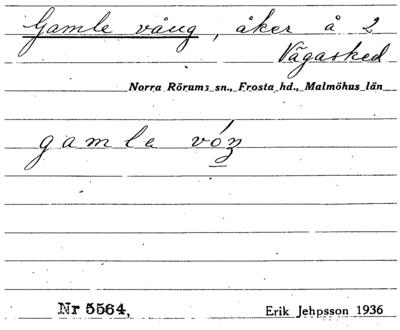 Gamle vång, åker å 2
Vägasked
Norra Rörums sn., Frosta hd., Malmöhus län
gamle
Nr 5564,
Erik Jehpsson 1936